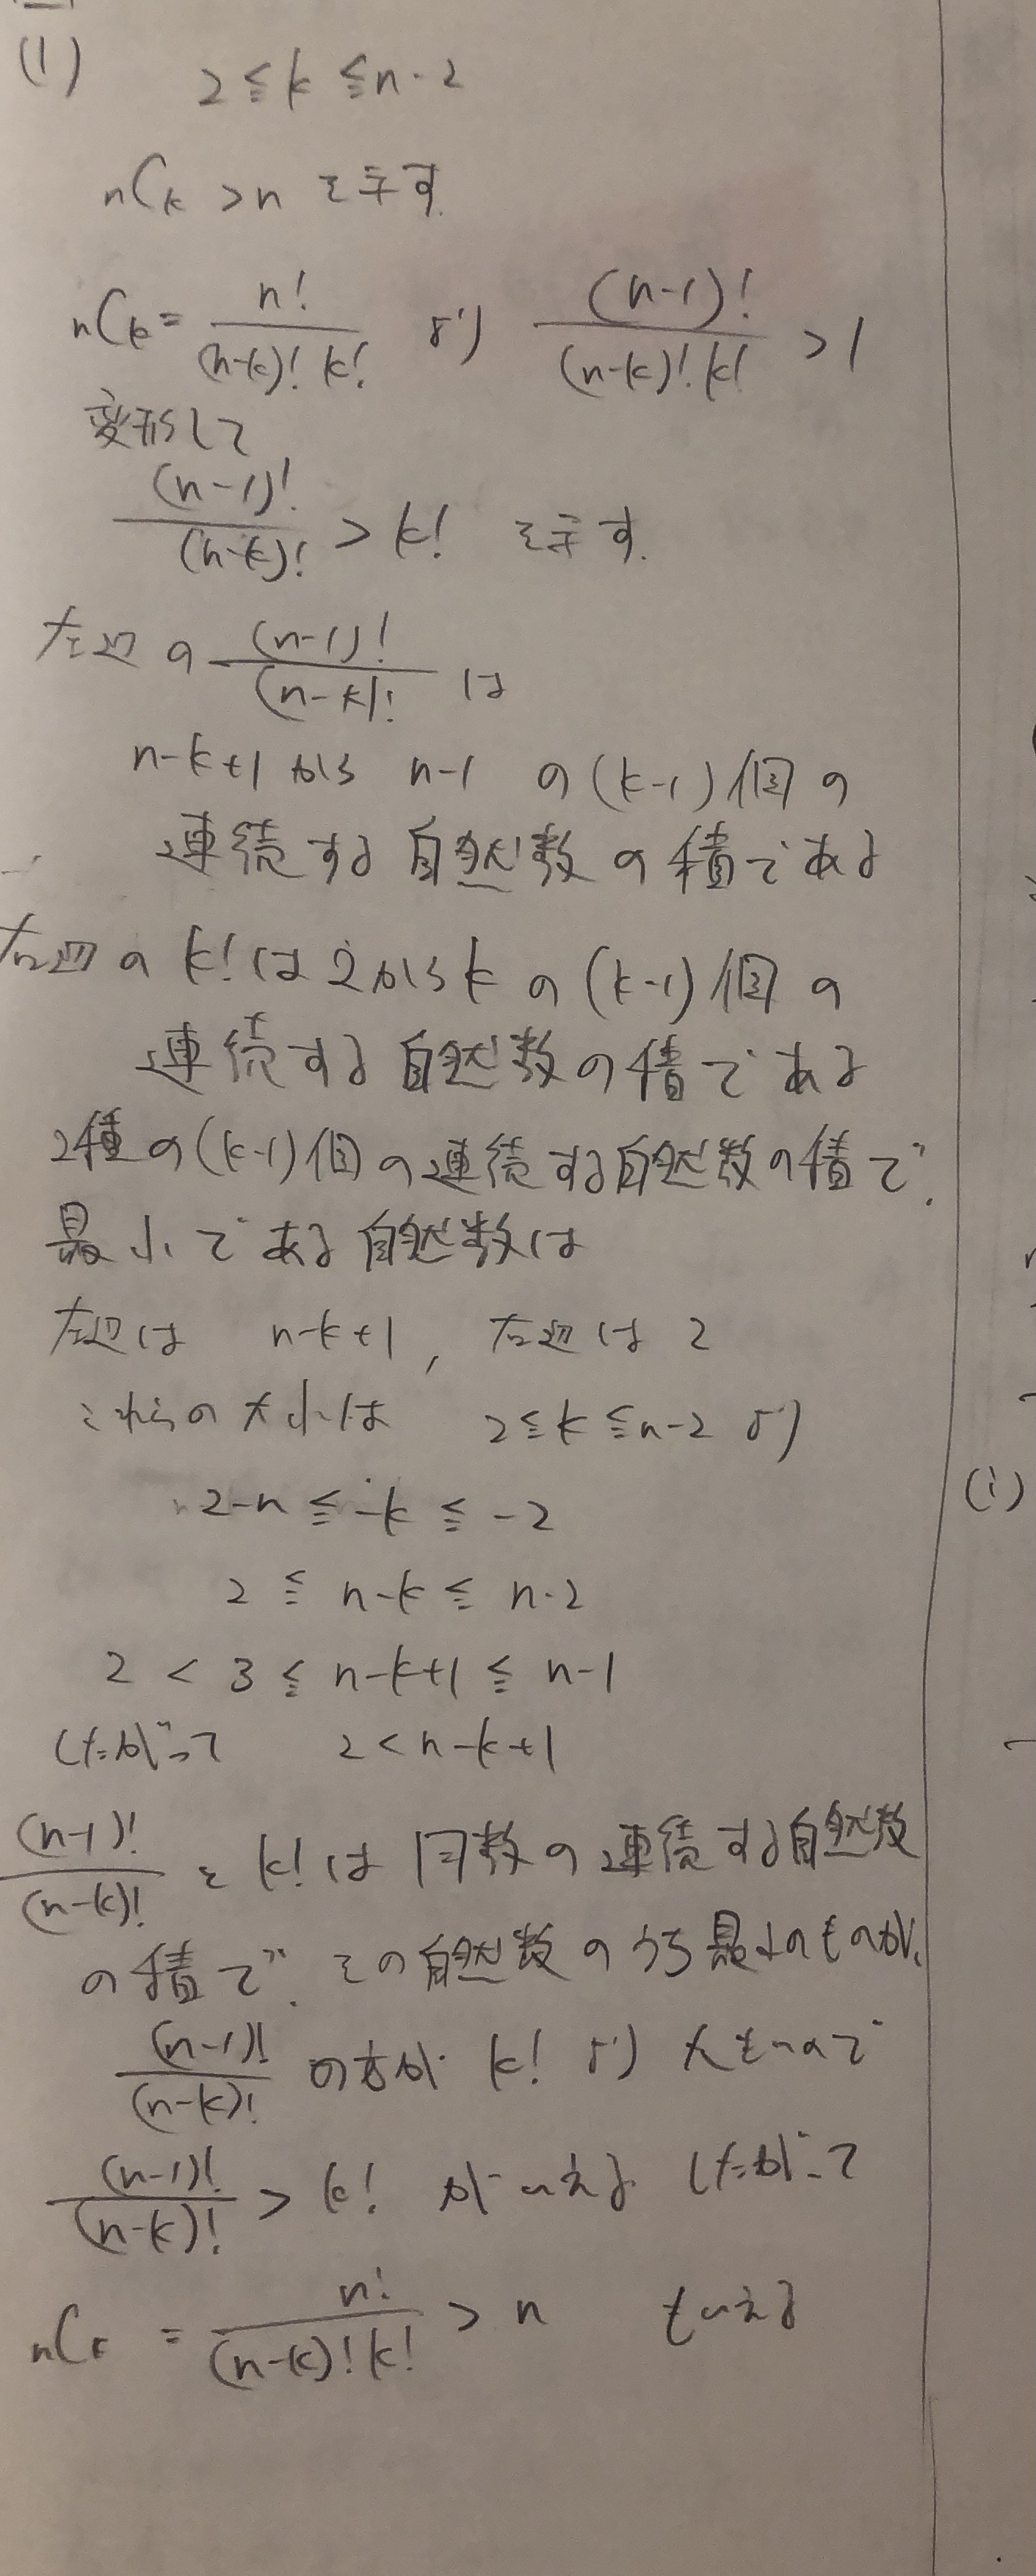 (1) 2 ≦ k ≦ n-2
nCk > n を示す.
nCk = n!/((n-k)! k!) より (n-1)!/((n-k)! k!) > 1
変形して
(n-1)!/(n-k)! > k! を示す.
左辺の (n-1)!/(n-k)! は
n-k+1 から n-1 の (k-1) 個の
連続する自然数の積である
右辺の k! は 2から k の (k-1) 個の
連続する自然数の積である
2種の (k-1) 個の連続する自然数の積で、
最小である自然数は
左辺は n-k+1, 右辺は 2
これらの大小は 2 ≦ k ≦ n-2 より
2-n ≦ -k ≦ -2
2 ≦ n-k ≦ n-2
2 < 3 ≦ n-k+1 ≦ n-1
したがって 2 < n-k+1
(n-1)!/(n-k)! と k! は同数の連続する自然数
の積で、その自然数のうち最小のものが、
(n-1)!/(n-k)! の方が k! より 大きいので
(n-1)!/(n-k)! > k! がいえる したがって
nCk = n!/((n-k)! k!) > n もいえる
(i)